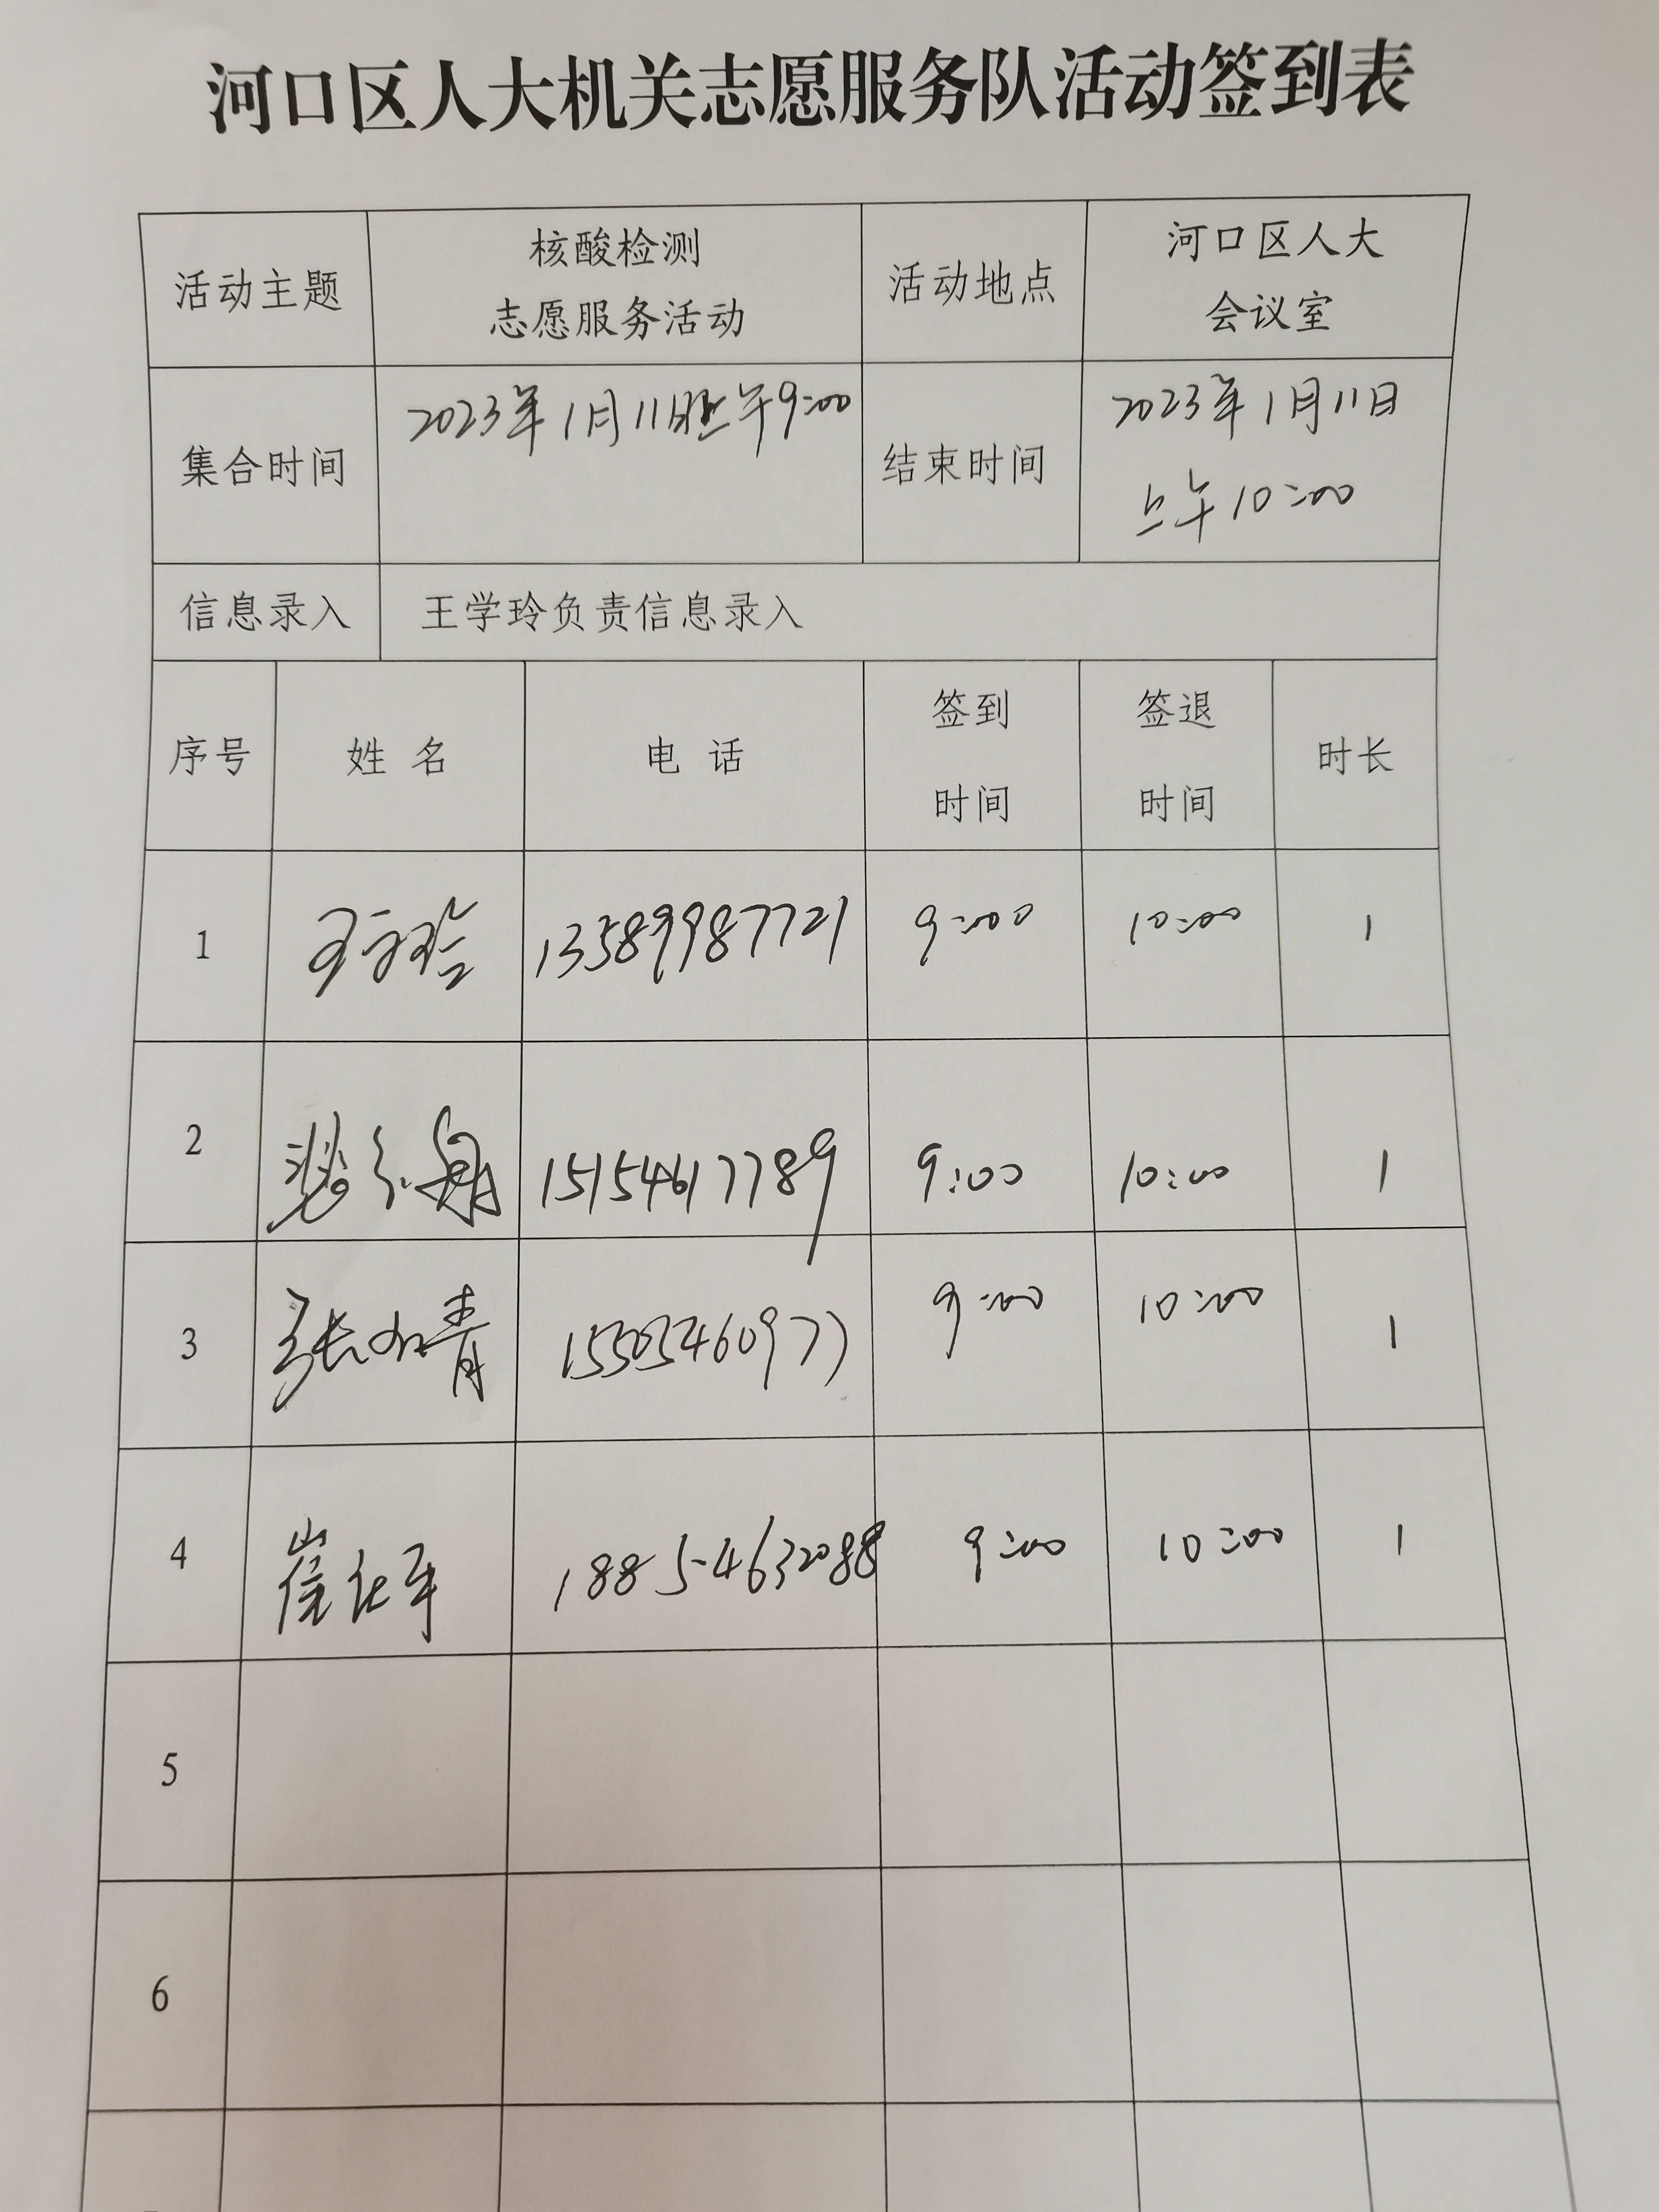 河口区人大机关志愿服务队活动签到表
活动主题
核酸检测
志愿服务活动
活动地点
河口区人大
会议室
集合时间
2023年1月11日上午9:00
结束时间
2023年1月11日
上午10:00
信息录入
王学玲负责信息录入
序号
姓名
电话
签到
时间
签退
时间
时长
1
王学玲
13589987721
9:00
10:00
1
2
15154617789
9:00
10:00
1
3
张如青
15505460977
9:00
10:00
1
4
崔
18854632088
9:00
10:00
1
5
6